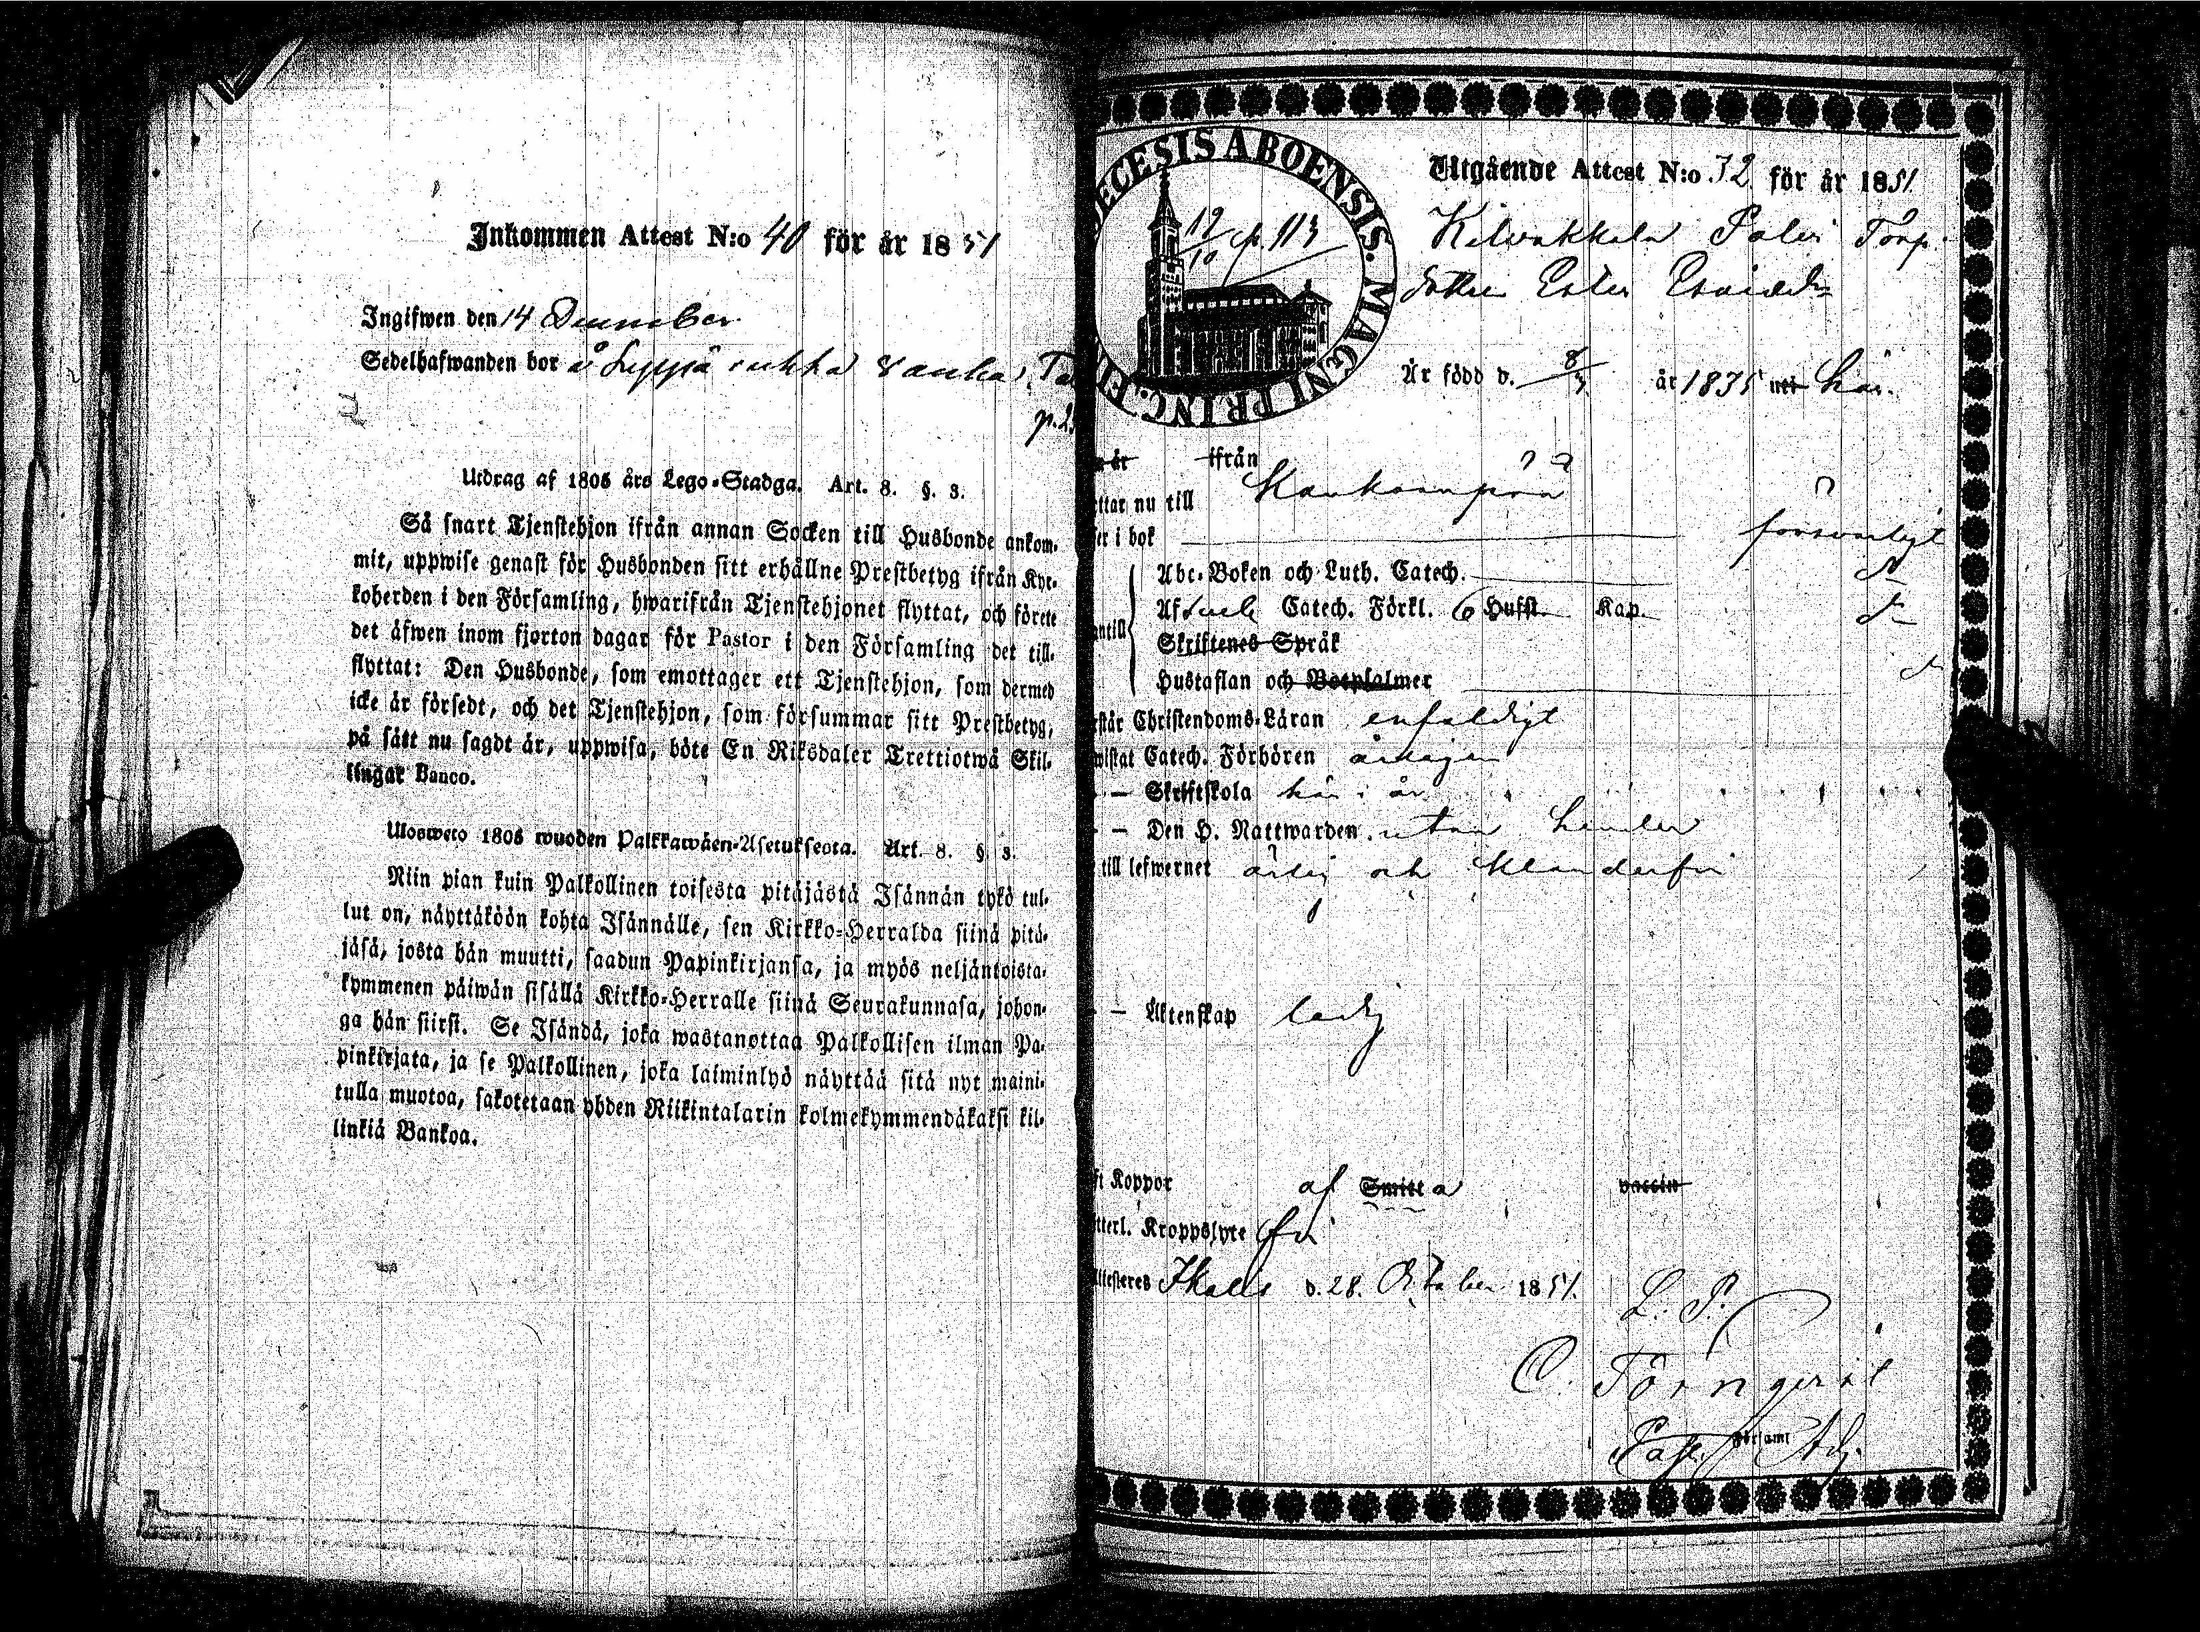 Inkommen Attest N:o 40 för år 1851
Ingifwen den 14 December
Sedelhafwanden bor å
p. 2
Utdrag af 1805 års Lego-Stadga. Art. 8. §. 3.
Så snart Tjenstehjon ifrån annan Socken till Husbonde ankom-
mit, uppwise genast för Husbonden sitt erhållne Prestbetyg ifrån Kyr-
koherden i den Församling, hwarifrån Tjenstehjonet flyttat, och förete
det äfwen inom fjorton dagar för Pastor i den Församling det till-
flyttat: Den Husbonde, som emottager ett Tjenstehjon, som dermed
icke är försedt, och det Tjenstehjon, som försummar sitt Prestbetyg,
på sätt nu sagdt är, uppwisa, böte En Riksdaler Trettiotwå Skil-
lingar Banco.
Ulosweto 1805 wuoden Palkkawäen-Asetuksesta. Art. 8. §. 3.
Niin pian kuin Palkollinen toisesta pitäjästä Isännän tykö tul-
lut on, näyttäköön kohta Isännälle, sen Kirkko-Herralda siinä pitä-
jäsä, josta hän muutti, saadun Papinkirjansa, ja myös neljäntoista-
kymmenen päiwän sisällä Kirkko-Herralle siinä Seurakunnasa, johon-
ga hän siirst. Se Isändä, joka wastanottaa Palkollisen ilman Pa-
pinkirjata, ja se Palkollinen, joka laiminlyö näyttää sitä nyt maini-
tulla muotoa, sakotetaan yhden Riikintalarin kolmekymmendäkaksi kil-
linkiä Bankoa.
ECESIS ABOENSIS. MAGNI PRINC. FI
19/10 p. 113
Utgående Attest N:o 32 för år 1851
Kilvakkala Torp.
dottren Ester
Är född d. 8/3 år 1835 uti här.
är ifrån
ttar nu till
er i bok försvarligt
Abc-Boken och Luth. Catech.
Af Catech. Förkl. 6 Hufst. Kap.
antill Skriftenes Språk
Hustaflan och Botpsalmer
står Christendoms-Läran enfaldigt
wistat Catech. Förhören årligen
— Skriftskola här i år
— Den H. Nattwarden utan hinder
till lefwernet ärlig och klanderfri
— Äktenskap ledig
ft Koppor af Smitta vaccin
tterl. Kroppslyte fri
Attesteres Ikalis d. 28. October 1851.
L. P.
C. Törnqvist
Past. Församl Adj.